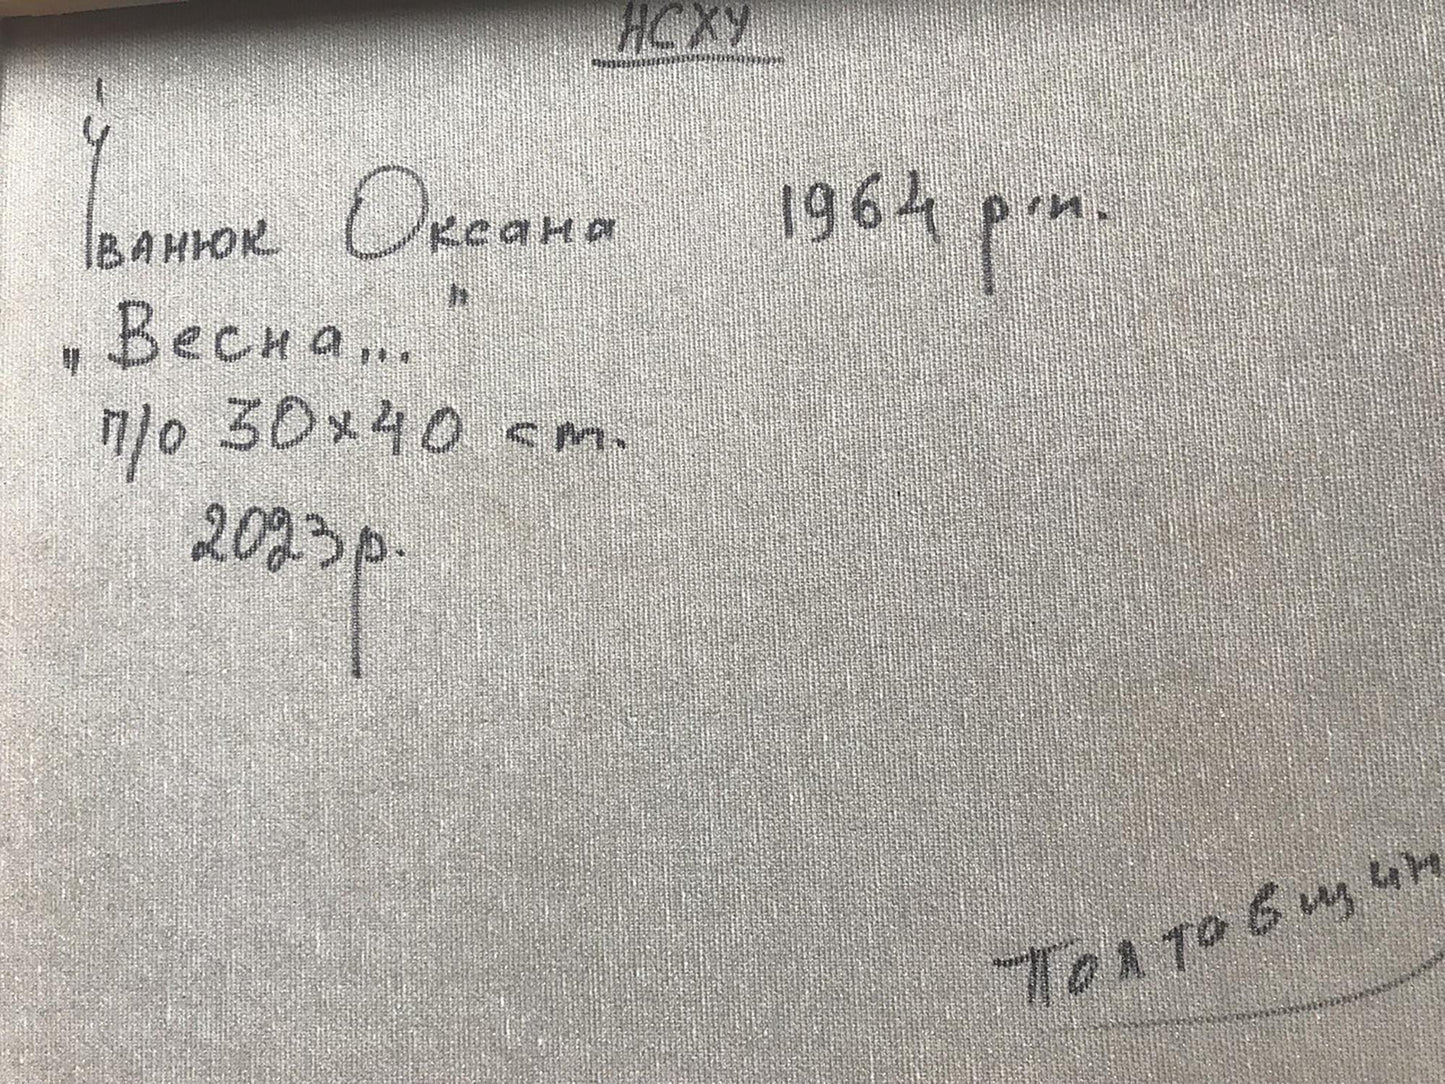 НСХУ
Іванюк Оксана 1964 р.н.
„Весна..."
п/о 30х40 ст.
2023р.
Полтовщин